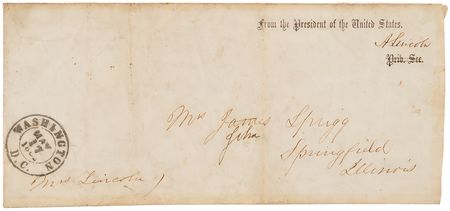 From the President of the United States.
A Lincoln
Priv. Sec.
WASHINGTON
MAY
17
D.C.
Mrs James Sprigg
John
Springfield
Illinois
Mrs Lincoln